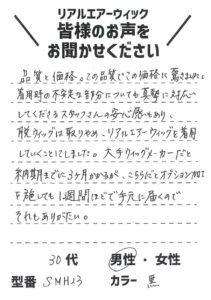 リアルエアーウィック
皆様のお声を
お聞かせください
品質と価格。この品質でこの価格に驚きました。
着用時の不安定な部分についても真摯に対応
してくださるスタッフさんの安心感もあり、
脱ウィッグは取りやめ、リアルエアーウィッグを着用
していくことにしました。大手ウィッグメーカーだと
納期までに3ヶ月かかるが、こちらだとオプション加工
を施しても1週間ほどで手元に届くので
それもありがたい。
30代 男性・女性
型番 SMH23 カラー 黒